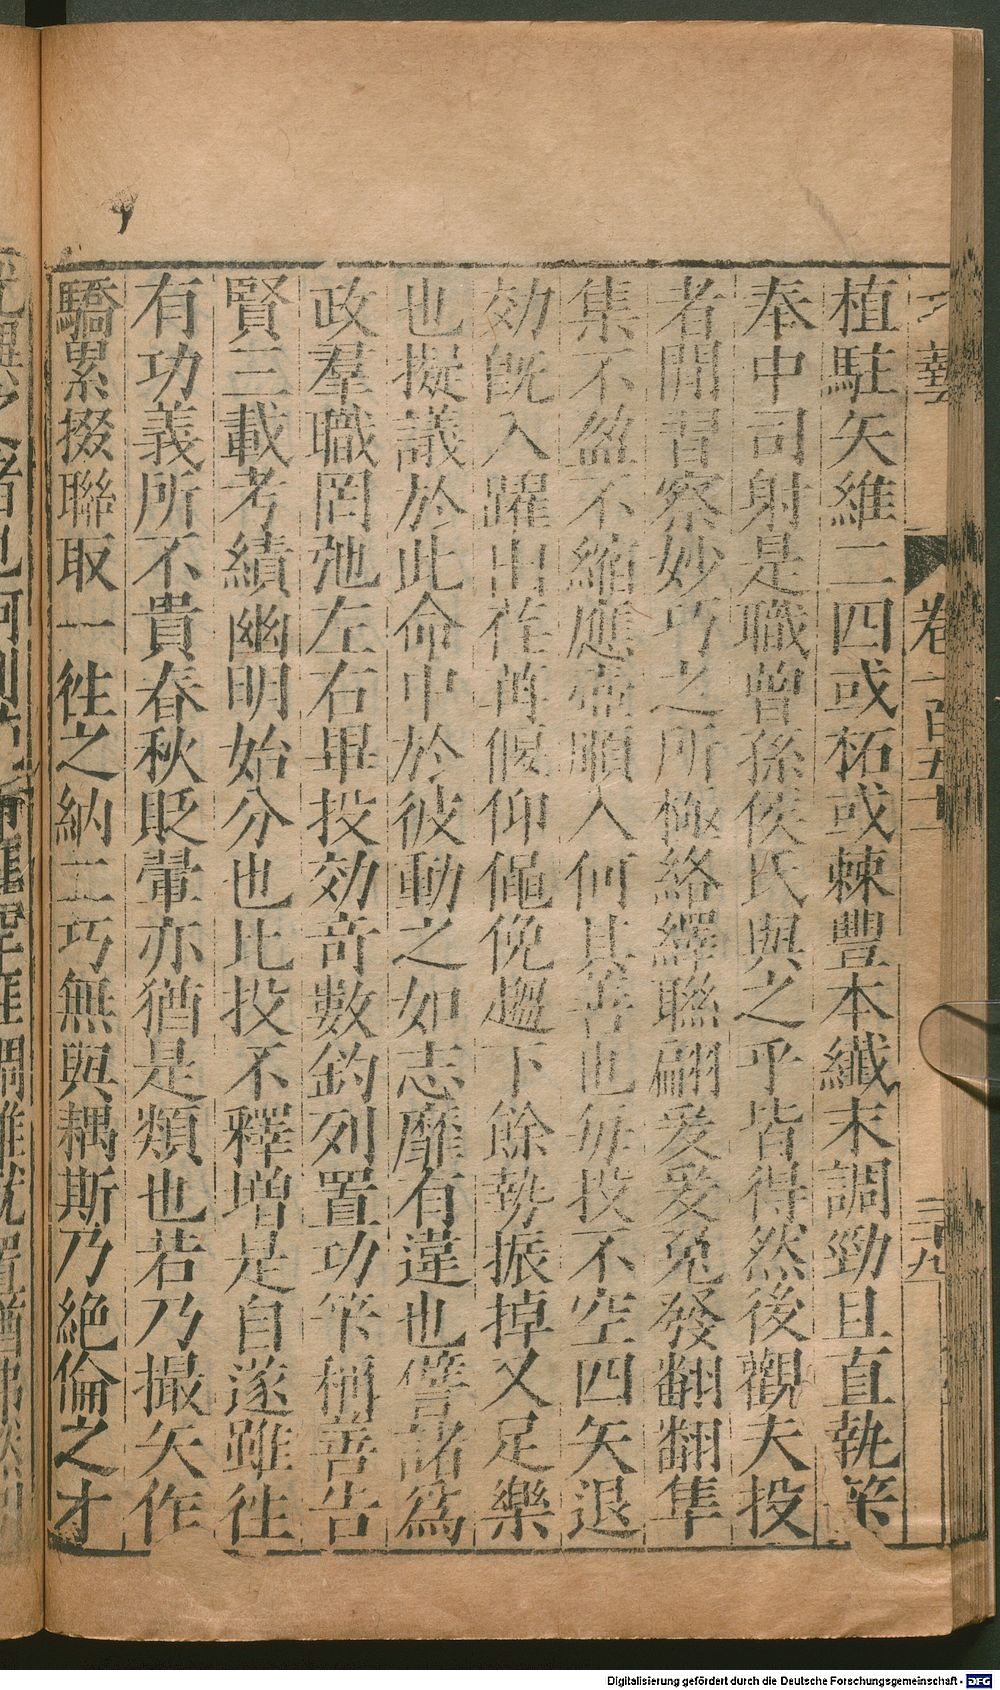 植駐矢維二四或柘或棘豐本纖末調勁且直執筭
奉中司射是職曾孫侯氏與之乎皆得然後觀夫投
者閒習察妙巧之所極絡繹聯翩爰爰兔發翻翻隼
集不盈不縮應壺順入何其善也每投不空四矢退
効既入躍出荏苒偃仰僶俛趨下餘勢振掉又足樂
也擬議於此命中於彼動之如志靡有違也譬諸爲
政羣職罔弛左右畢投効奇數鈞列置功筭稱善告
賢三載考績幽明始分也比投不釋增是自遂雖往
有功義所不貴春秋貶翬亦猶是類也若乃撮矢作
驕累掇聯取一往之納二巧無與耦斯乃絕倫之才
卷一百五十
三十九
Digitalisierung gefördert durch die Deutsche Forschungsgemeinschaft - DFG